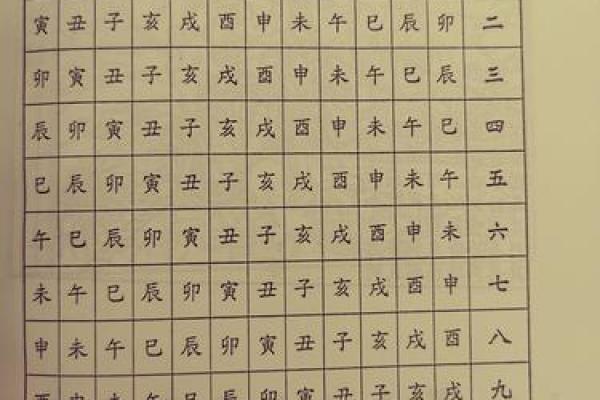 寅 丑 子 亥 戌 酉 申 未 午 巳 辰 卯 二
卯 寅 丑 子 亥 戌 酉 申 未 午 巳 辰 三
辰 卯 寅 丑 子 亥 戌 酉 申 未 午 巳 四
巳 辰 卯 寅 丑 子 亥 戌 酉 申 未 午 五
午 巳 辰 卯 寅 丑 子 亥 戌 酉 申 未 六
未 午 巳 辰 卯 寅 丑 子 亥 戌 酉 申 七
申 未 午 巳 辰 卯 寅 丑 子 亥 戌 酉 八
辰 卯 寅 丑 子 亥 戌 九